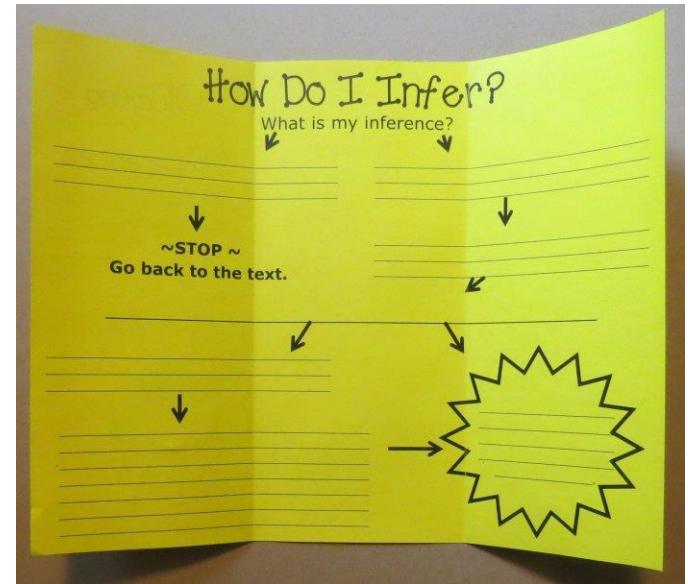 How Do I Infer?
What is my inference?
~STOP ~
Go back to the text.